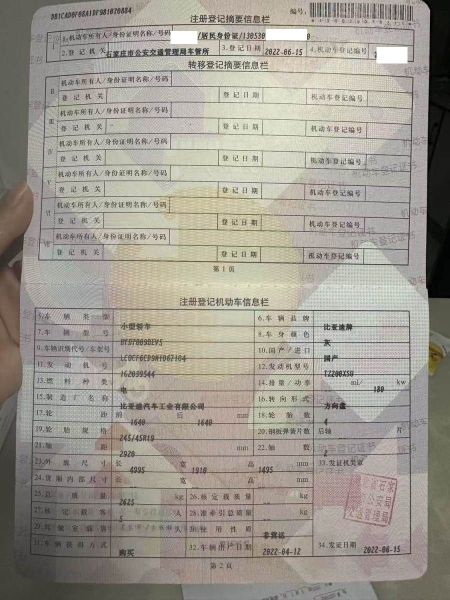 注册登记摘要信息栏
编号:
1.机动车所有人/身份证明名称/号码 /居民身份证/130530
2.登记机关 石家庄市公安交通管理局车管所 3.登记日期 2022-06-15 4.机动车登记编号
转移登记摘要信息栏
II 机动车所有人/身份证明名称/号码
登记机关 登记日期 机动车登记编号
III 机动车所有人/身份证明名称/号码
登记机关 登记日期 机动车登记编号
IV 机动车所有人/身份证明名称/号码
登记机关 登记日期 机动车登记编号
V 机动车所有人/身份证明名称/号码
登记机关 登记日期 机动车登记编号
VI 机动车所有人/身份证明名称/号码
登记机关 登记日期 机动车登记编号
VII 机动车所有人/身份证明名称/号码
登记机关 登记日期 机动车登记编号
第1页
注册登记机动车信息栏
5.车辆类型 小型轿车 6.车辆品牌 比亚迪牌
7.车辆型号 8.车身颜色 灰
9.车辆识别代号/车架号 10.国产/进口 国产
11.发动机号 162039544 12.发动机型号 TZ200XSU
13.燃料种类 电 14.排量/功率 ml/ 180 kw
15.制造厂名称 比亚迪汽车工业有限公司 16.转向形式 方向盘
17.轮距 前 1640 后 1640 mm 18.轮胎数 4
19.轮胎规格 245/45R19 20.钢板弹簧片数 后轴 片
21.轴距 2920 mm 22.轴数 2
23.外廓尺寸 长 4995 宽 1910 高 1495 mm 33.发证机关章
24.货厢内部尺寸 长 宽 高 mm
25.总质量 2625 kg 26.核定载质量 kg
27.核定载客 5 人 28.准牵引总质量 kg
29.驾驶室载客 人 30.使用性质 非营运
31.车辆获得方式 购买 32.车辆出厂日期 2022-04-12 34.发证日期 2022-06-15
第2页